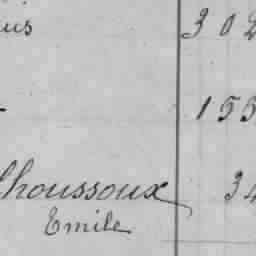 us 302
155
Choussoux 34
Emile